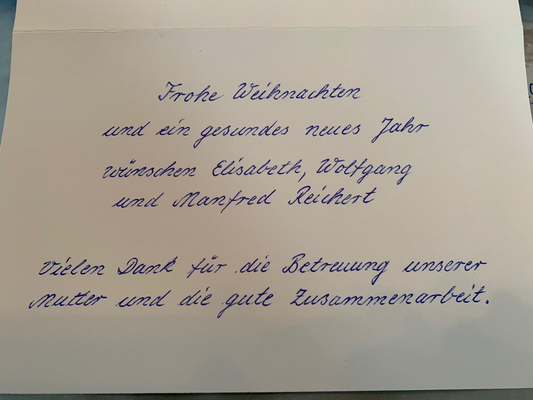 Frohe Weihnachten
und ein gesundes neues Jahr
wünschen Elisabeth, Wolfgang
und Manfred Reichert
Vielen Dank für die Betreuung unserer
Mutter und die gute Zusammenarbeit.